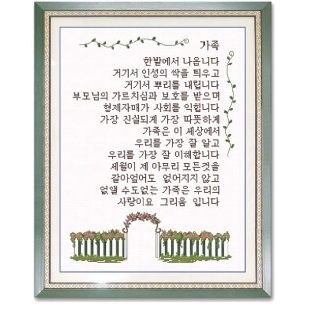 가족
한밭에서 나옵니다
거기서 인성의 싹을 틔우고
거기서 뿌리를 내립니다
부모님의 가르치심과 보호를 받으며
형제자매가 사회를 익힙니다
가장 진실되게 가장 따뜻하게
가족은 이 세상에서
우리를 가장 잘 알고
우리를 가장 잘 이해합니다
세월이 제 아무리 모든것을
갈아엎어도 없어지지 않고
없앨 수도없는 가족은 우리의
사랑이요 그리움 입니다